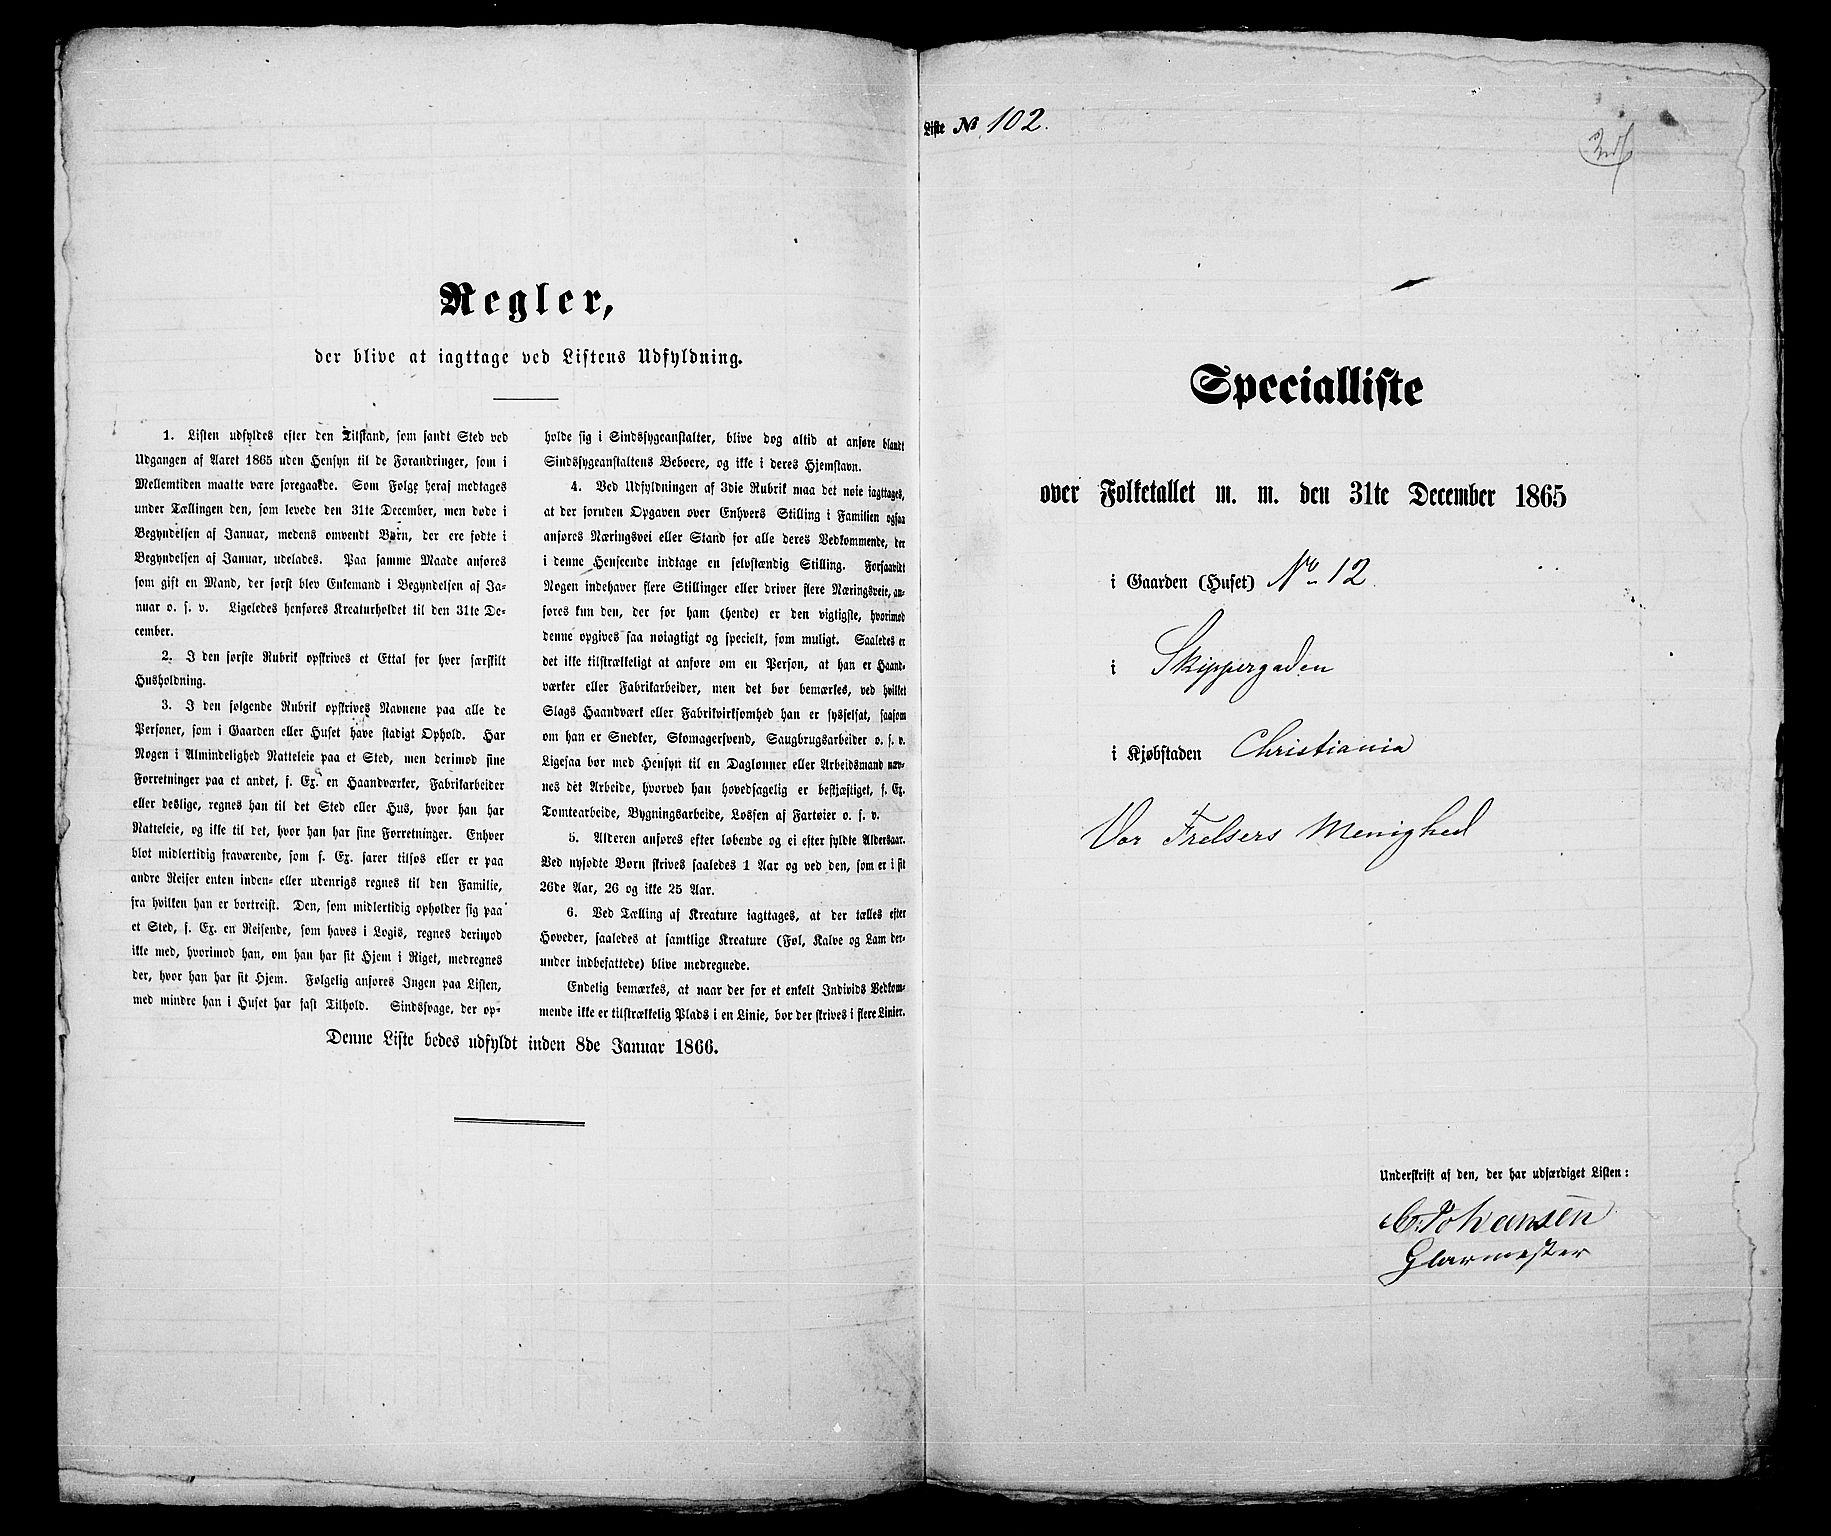 Regler,
der blive at iagttage ved Listens Udfyldning.
1. Listen udfyldes efter den Tilstand, som fandt Sted ved
Udgangen af Aaret 1865 uden Hensyn til de Forandringer, som i
Mellemtiden maatte være foregaaede. Som Følge heraf medtages
under Tællingen den, som levede den 31te December, men døde i
Begyndelsen af Januar, medens omvendt Børn, der ere fødte i
Begyndelsen af Januar, udelades. Paa samme Maade anføres
som gift en Mand, der først blev Enkemand i Begyndelsen af Ja-
nuar o. s. v. Ligeledes henføres Kreaturholdet til den 31te De-
cember.
2. I den første Rubrik opskrives et Ettal for hver særskilt
Husholdning.
3. I den følgende Rubrik opskrives Navnene paa alle de
Personer, som i Gaarden eller Huset have stadigt Ophold. Har
Nogen i Almindelighed Natteleie paa et Sted, men derimod sine
Forretninger paa et andet, f. Ex. en Haandværker, Fabrikarbeider
eller deslige, regnes han til det Sted eller Hus, hvor han har
Natteleie, og ikke til det, hvor han har sine Forretninger. Enhver
blot midlertidig fraværende, som f. Ex. farer tilsøs eller er paa
andre Reiser enten inden- eller udenrigs regnes til den Familie,
fra hvilken han er bortreist. Den, som midlertidig opholder sig paa
et Sted, f. Ex. en Reisende, som haves i Logis, regnes derimod
ikke med, hvorimod han, om han har sit Hjem i Riget, medregnes
der, hvor han har sit Hjem. Følgelig anføres Ingen paa Listen,
med mindre han i Huset har fast Tilhold. Sindssvage, der op-
holde sig i Sindssygeanstalter, blive dog altid at anføre blandt
Sindssygeanstaltens Beboere, og ikke i deres Hjemstavn.
4. Ved Udfyldningen af 3die Rubrik maa det nøie iagttages,
at der foruden Opgaven over Enhvers Stilling i Familien ogsaa
anføres Næringsvei eller Stand for alle deres Vedkommende, der
i denne Henseende indtage en selvstændig Stilling. Forsaavidt
Nogen indehaver flere Stillinger eller driver flere Næringsveie, an-
føres kun den, der for ham (hende) er den vigtigste, hvorimod
denne opgives saa nøiagtigt og specielt, som muligt. Saaledes er
det ikke tilstrækkeligt at anføre om en Person, at han er Haand-
værker eller Fabrikarbeider, men det bør bemærkes, ved hvilket
Slags Haandværk eller Fabrikvirksomhed han er sysselsat, saasom
om han er Snedker, Skomagersvend, Saugbrugsarbeider o. s. v.
Ligesaa bør med Hensyn til en Daglønner eller Arbeidsmand næv-
nes det Arbeide, hvorved han hovedsagelig er beskjæftiget, f. Ex.
Tomtearbeide, Bygningsarbeide, Lossen af Fartøier o. s. v.
5. Alderen anføres efter løbende og ei efter fyldte Aldersaar.
Ved nyfødte Børn skrives saaledes 1 Aar og ved den, som er i sit
26de Aar, 26 og ikke 25 Aar.
6. Ved Tælling af Kreature iagttages, at der tælles efter
Hoveder, saaledes at samtlige Kreature (Føl, Kalve og Lam der-
under indbefattede) blive medregnede.
Endelig bemærkes, at naar der for et enkelt Individs Vedkom-
mende ikke er tilstrækkelig Plads i en Linie, bør der skrives i flere Linier.
Denne Liste bedes udfyldt inden 8de Januar 1866.
Liste № 102.
Specialliste
over Folketallet m. m. den 31te December 1865
i Gaarden (Huset) No 12
i Skippergaden
i Kjøbstaden Christiania
Vor Frelsers Menighed
Underskrift af den, der har udfærdiget Listen:
C. Johansen
Glarmester